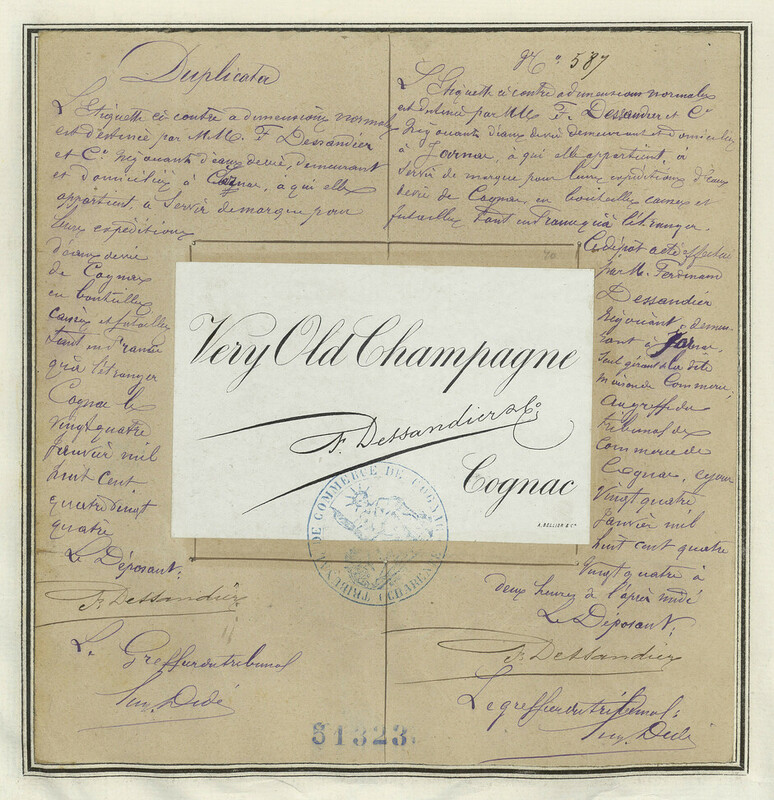 Duplicata
L'Etiquette ci contre a dimensions normales
est destinée par M.M. F. Dessandier
et Cie Négociants d'eaux de vie, demeurant
et domiciliés à , à qui elle
appartient, à servir de marque pour
leurs expéditions
d'eaux de vie
de Cognac
en bouteilles
caisses et futailles
tant en France
qu'à l'étranger
Cognac le
vingt quatre
Janvier mil
huit cent
quatre vingt
quatre
Le Déposant:
F. Dessandier
Le Greffier du tribunal
Dédé
No. 587
L'Etiquette ci contre a dimensions normales
est destinée par MM. F. Dessandier et Cie
Négociants d'eaux de vie demeurant et domiciliés
à Jarnac, à qui elle appartient, à
servir de marque pour leurs expéditions d'eaux
de vie de Cognac, en bouteilles caisses et
futailles tant en France qu'à l'étranger.
Ce dépôt a été effectué
par M. Ferdinand
Dessandier
Négociant, demeu-
rant à Jarnac,
seul gérant de la dite
maison de Commerce,
au greffe du
tribunal de
Commerce de
Cognac, ce jour
Vingt quatre
Janvier mil
huit cent quatre
Vingt quatre à
deux heures de l'après midi
Le Déposant:
F. Dessandier
Le greffier du tribunal:
Dédé
70
Very Old Champagne
F. Dessandier & Co.
Cognac
A. BELLIER & Cie
TRIBUNAL DE COMMERCE DE COGNAC (CHARENTE)
51323